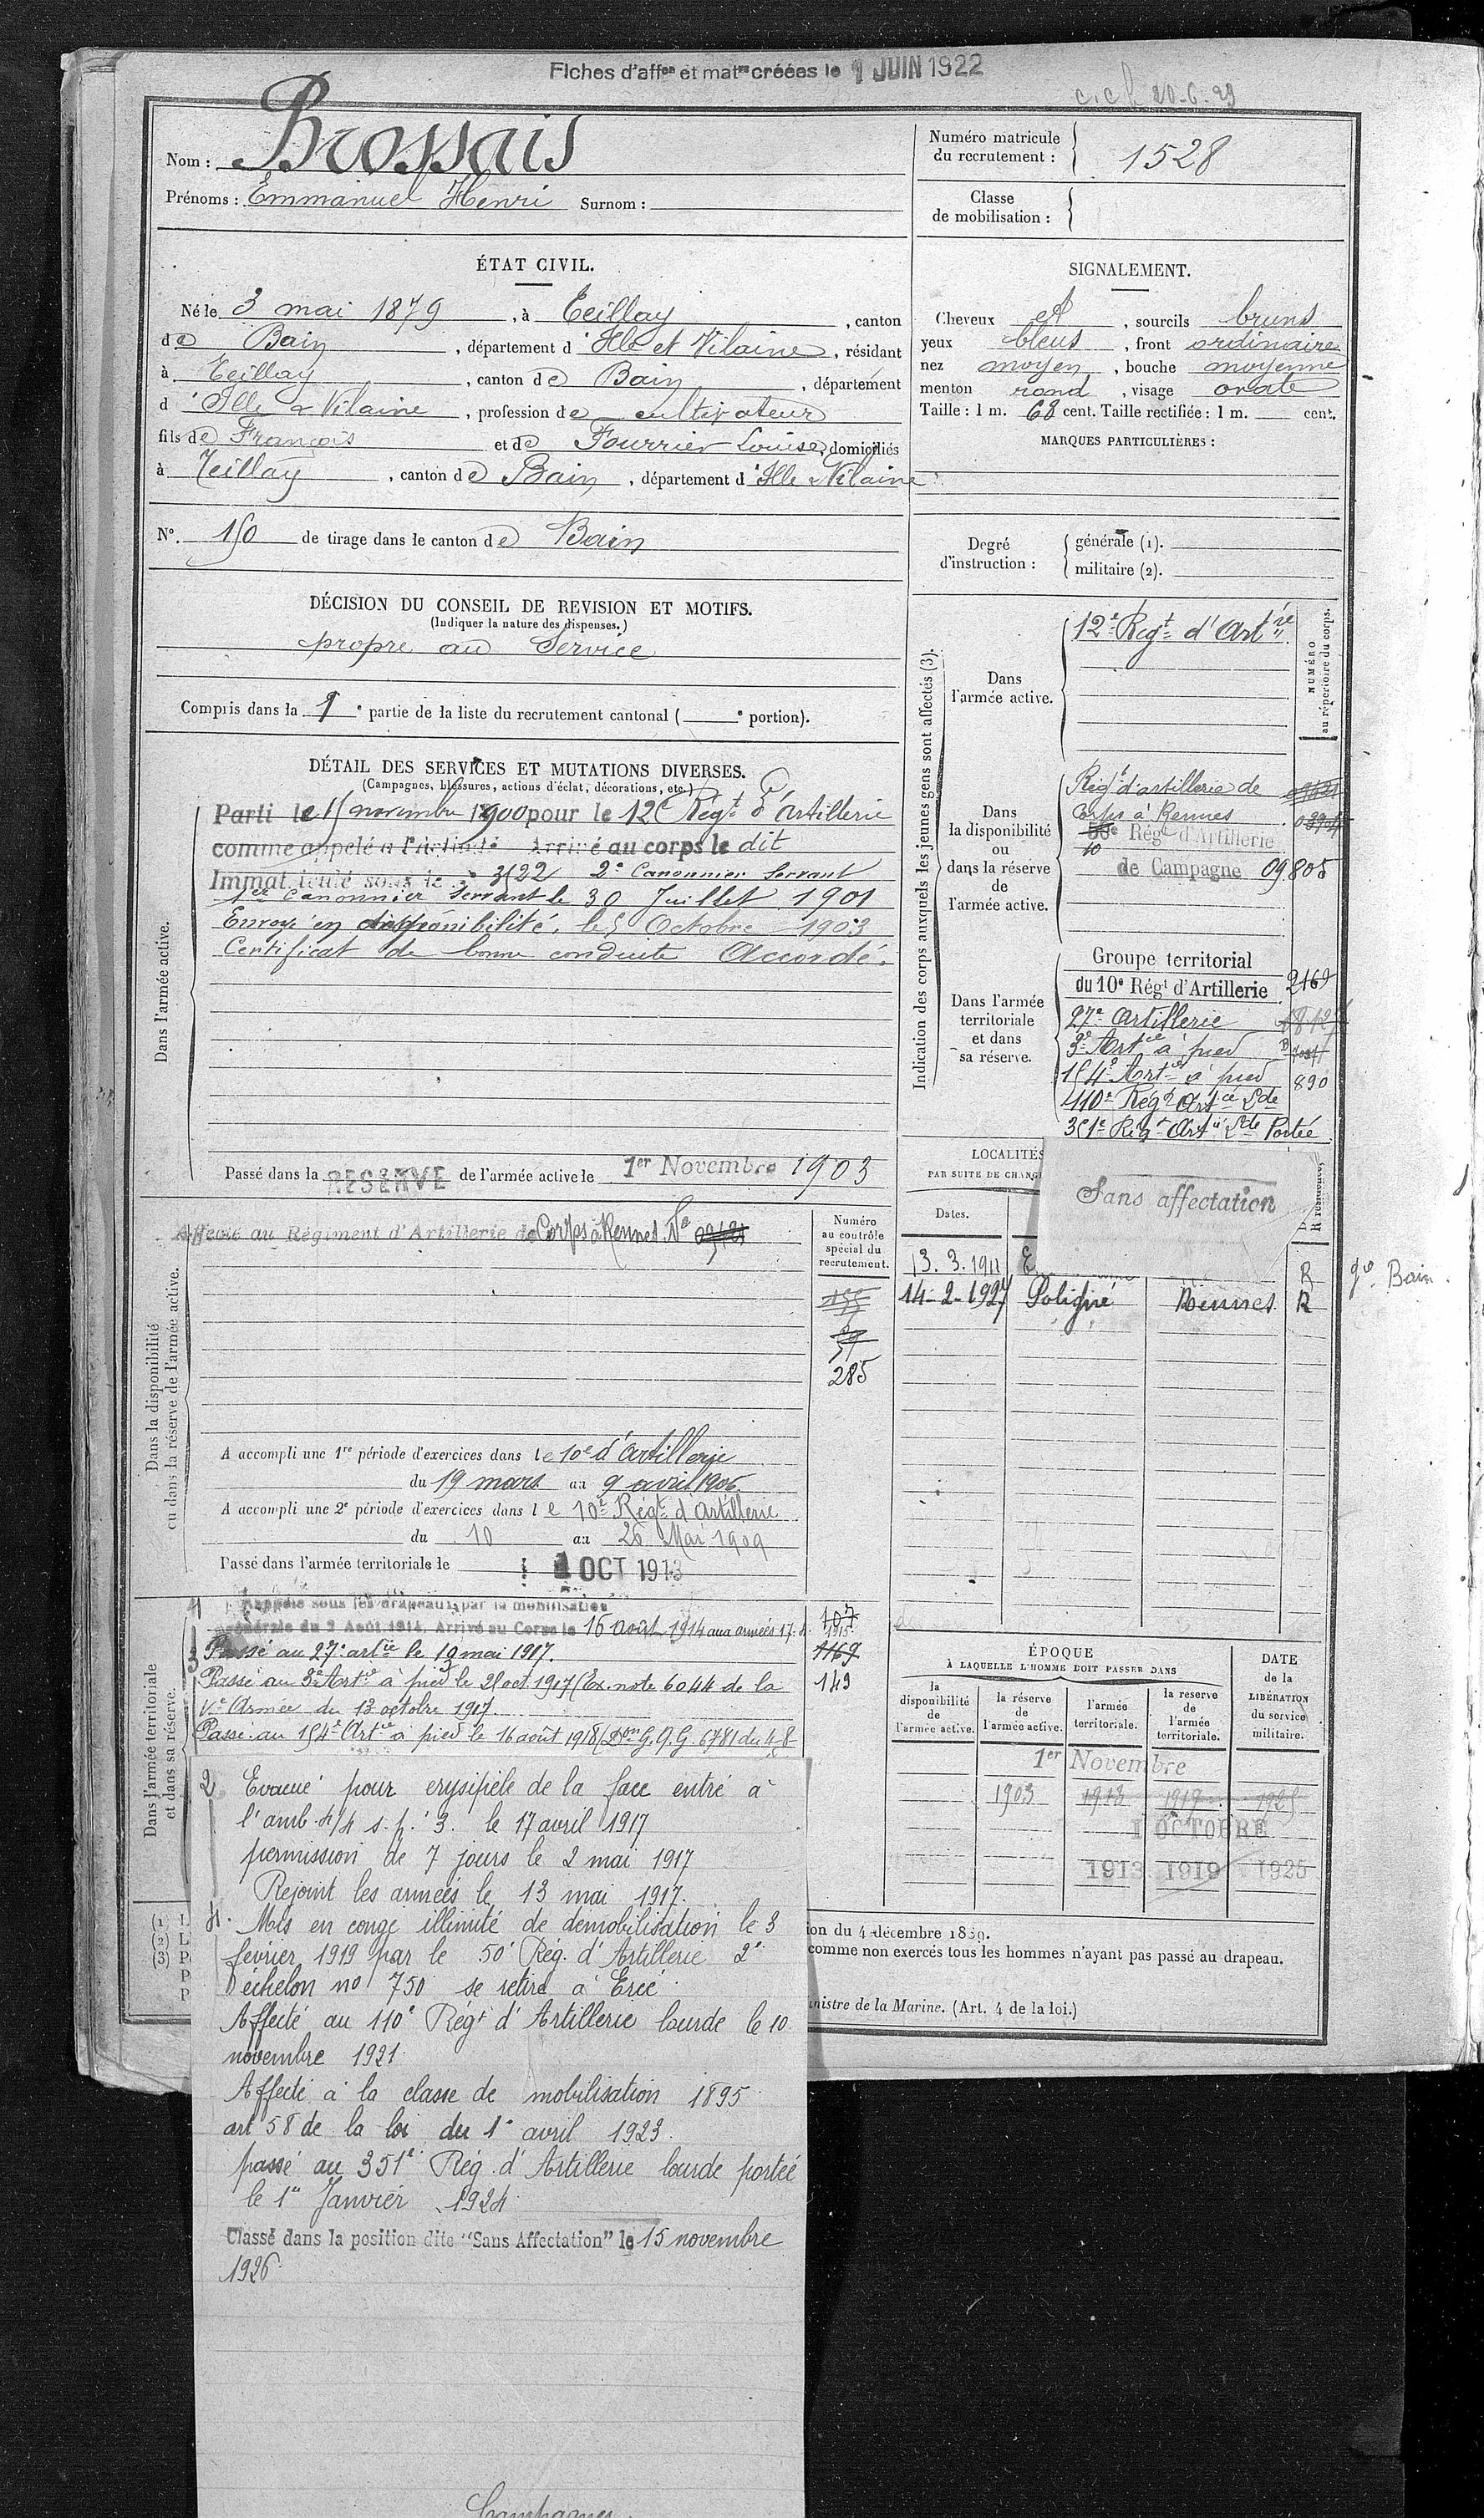 Fiches d'affon et matre créées le 1 JUIN 1922
c.c.l 20-6-29
Nom : Brossais
Prénoms : Emmanuel Henri Surnom :
Numéro matricule du recrutement : 1528
Classe de mobilisation :
ÉTAT CIVIL.
Né le 3 mai 1879, à Teillay, canton
de Bain, département d'Ille et Vilaine, résidant
à Teillay, canton de Bain, département
d'Ille & Vilaine, profession de cultivateur
fils de François et de Fourrier Louise, domiciliés
à Teillay, canton de Bain, département d'Ille & Vilaine
N°. 150 de tirage dans le canton de Bain
SIGNALEMENT.
Cheveux et, sourcils bruns
yeux bleus, front ordinaire
nez moyen, bouche moyenne
menton rond, visage ovale
Taille : 1 m. 68 cent. Taille rectifiée : 1 m. cent.
MARQUES PARTICULIÈRES :
Degré d'instruction :
générale (1).
militaire (2).
DÉCISION DU CONSEIL DE REVISION ET MOTIFS.
(Indiquer la nature des dispenses.)
propre au Service
Compris dans la 1e partie de la liste du recrutement cantonal ( e portion).
DÉTAIL DES SERVICES ET MUTATIONS DIVERSES.
(Campagnes, blessures, actions d'éclat, décorations, etc.)
Dans l'armée active.
Parti le 15 novembre 1900 pour le 12e Régt d'Artillerie
comme appelé à l'activité Arrivé au corps le dit
Immatriculé sous le 3522 2e Canonnier Servant
1er Canonnier Servant le 30 Juillet 1901
Envoyé en disponibilité, le 5 Octobre 1903
Certificat de bonne conduite Accordé.
Passé dans la RÉSERVE de l'armée active le 1er Novembre 1903
Indication des corps auxquels les jeunes gens sont affectés (3).
NUMÉRO au répertoire du corps.
Dans l'armée active.
12e Régt d'Artrie
Dans la disponibilité ou dans la réserve de l'armée active.
Régt d'artillerie de
Corps à Rennes
50e Régt d'Artillerie
10
de Campagne 09.805
Dans l'armée territoriale et dans sa réserve.
Groupe territorial
du 10e Régt d'Artillerie 2169
27e Artillerie
3e Artie à pied
154e Artie à pied 890
110e Régt Artie Lde
351e Régt Artie Lde Portée
LOCALITÉS
PAR SUITE DE CHANG
Sans affectation
Dates.
13.3.1911 E R
14-2-1927 Poligné Rennes R
ge Bain
Dans la disponibilité ou dans la réserve de l'armée active.
Affecté au Régiment d'Artillerie de Corps à Rennes No
Numéro au contrôle spécial du recrutement.
285
A accompli une 1re période d'exercices dans le 10e d'Artillerie
du 19 mars au 9 avril 1906
A accompli une 2e période d'exercices dans le 10e Régt d'Artillerie
du 10 au 26 Mai 1909
Passé dans l'armée territoriale le 1 OCT 1913
Dans l'armée territoriale et dans sa réserve.
1 Rappelé sous les drapeaux par la mobilisation
générale du 2 Août 1914. Arrivé au Corps le 16 août 1914 aux armées 17.
3 Passé au 27e artie le 19 mai 1917.
Passé au 3e Artie à pied le 21 oct 1917 (Ex. note 6044 de la
Ve Armée du 13 octobre 1917.
Passé au 154e Artie à pied le 16 août 1918 (Don G.Q.G. 6781 du 4-8
107
1169
143
2 Evacué pour erysipèle de la face entré à
l'amb. 4/4 s.p. 3. le 17 avril 1917
permission de 7 jours le 2 mai 1917
Rejoint les armées le 13 mai 1917.
4. Mis en congé illimité de démobilisation le 3
février 1919 par le 50e Rég. d'Artillerie 2e
échelon no 750 se retire à Ercé
Affecté au 110e Régt d'Artillerie lourde le 10
novembre 1921
Affecté à la classe de mobilisation 1895
art 58 de la loi du 1er avril 1923.
passé au 351e Rég. d'Artillerie lourde portée
le 1er Janvier 1924
Classé dans la position dite "Sans Affectation" le 15 novembre
1926
ÉPOQUE
À LAQUELLE L'HOMME DOIT PASSER DANS
la disponibilité de l'armée active.
la réserve de l'armée active.
l'armée territoriale.
la reserve de l'armée territoriale.
DATE de la LIBÉRATION du service militaire.
1er Novembre
1903 1913 1919 1925
1 OCTOBRE
1913 1919 1925
(1) L
(2) L
(3) P
P
P
ion du 4 décembre 1889.
comme non exercés tous les hommes n'ayant pas passé au drapeau.
nistre de la Marine. (Art. 4 de la loi.)
Campagnes